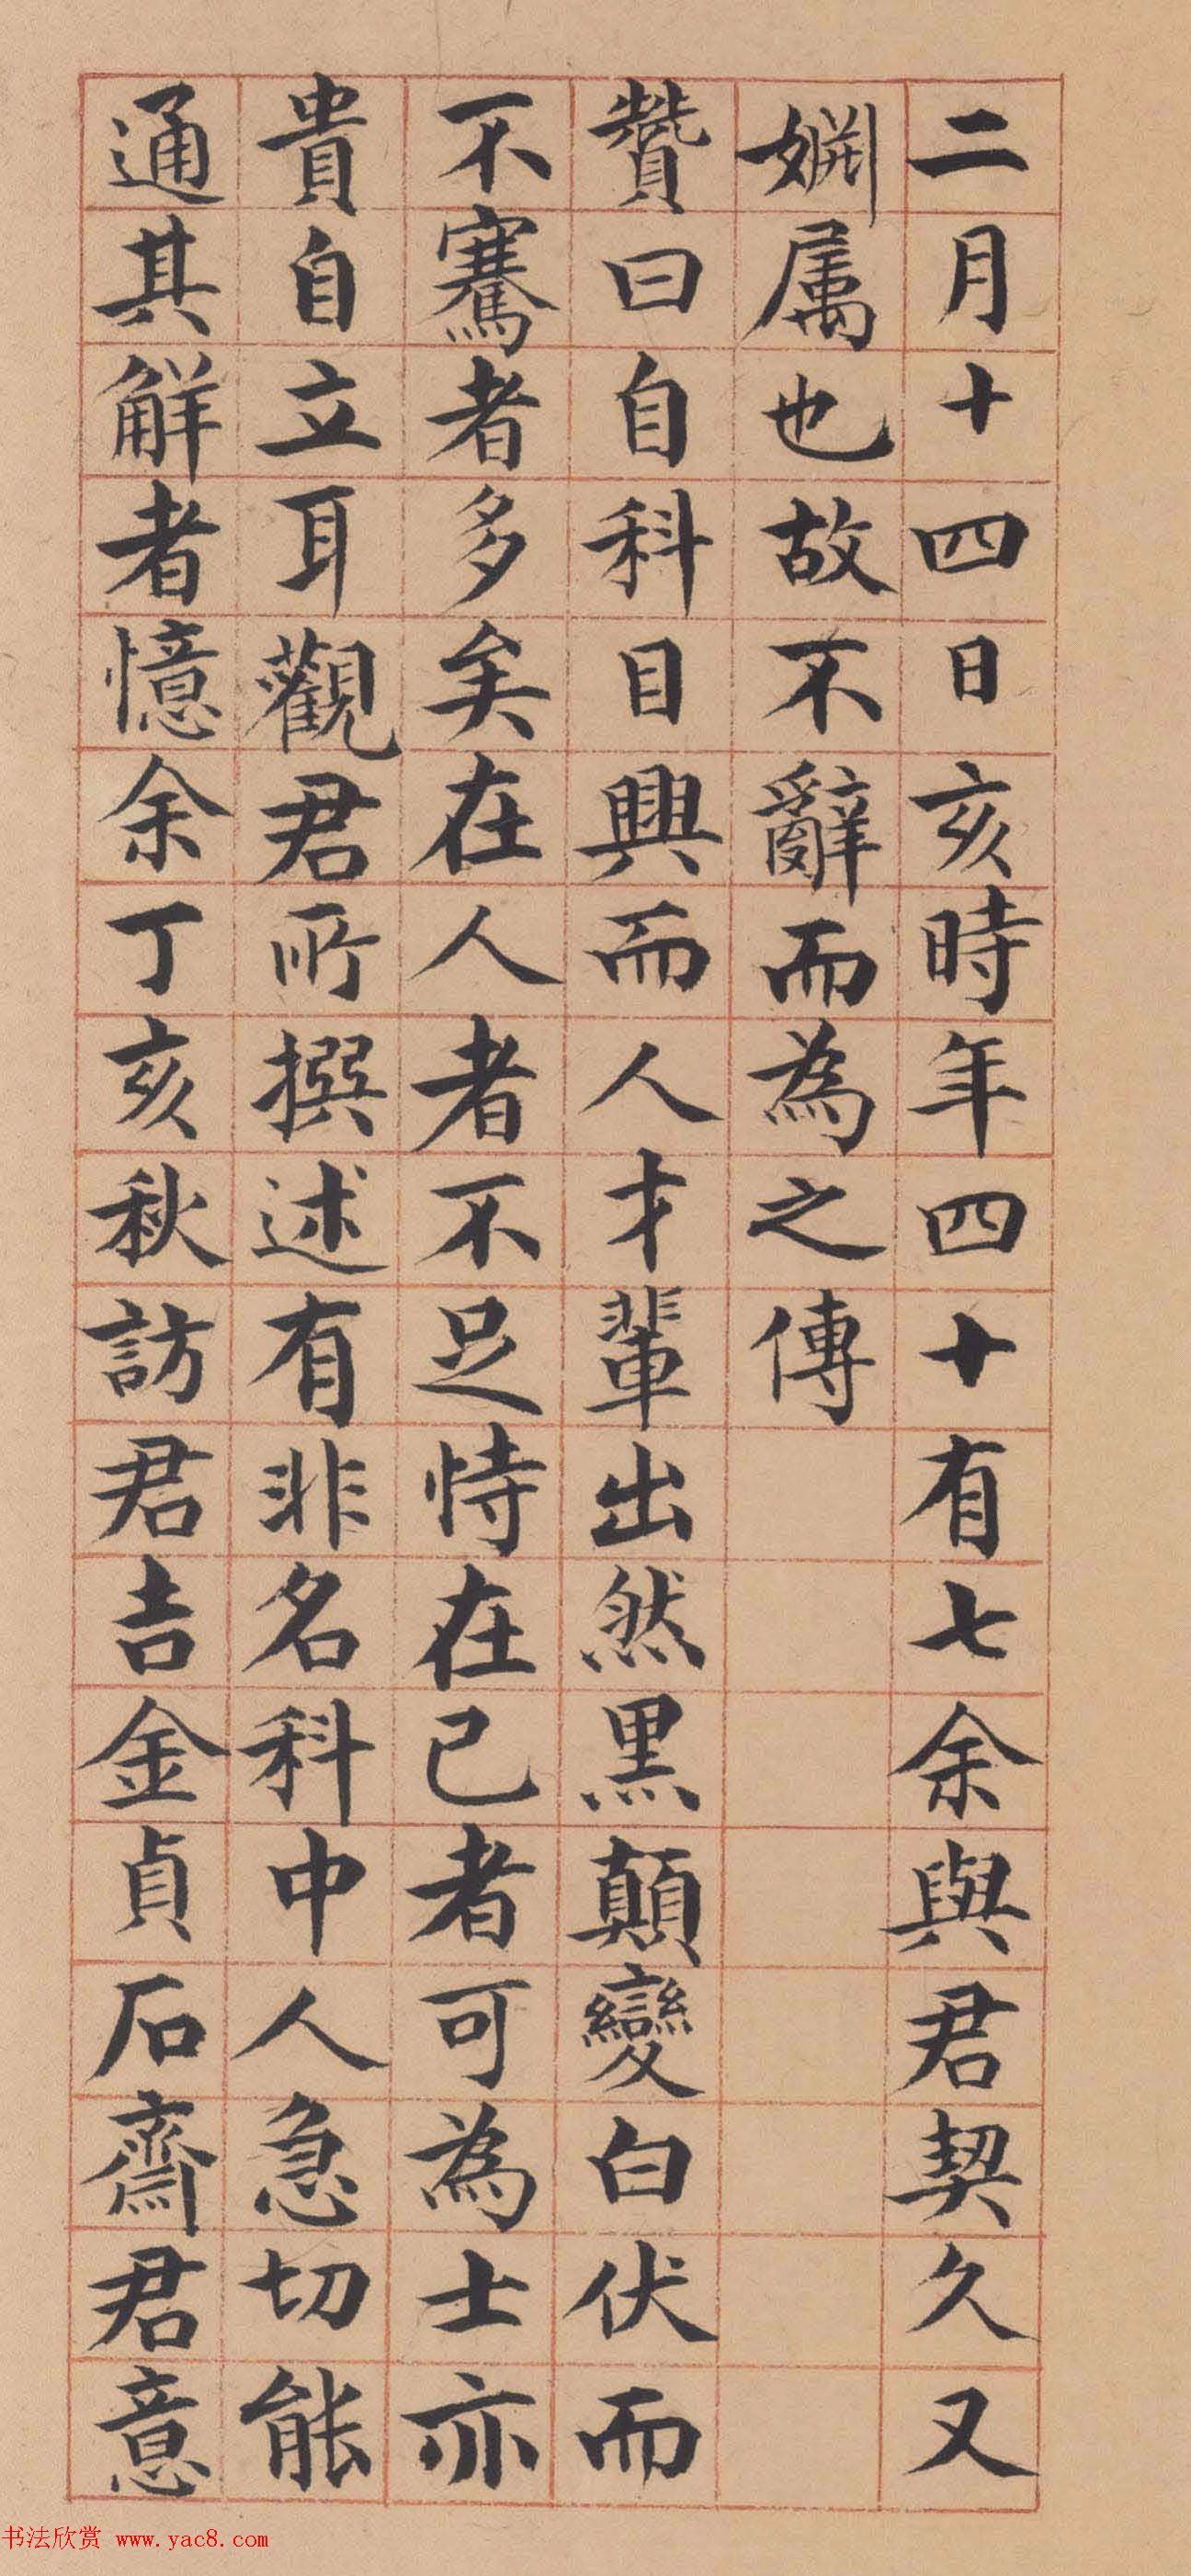 二月十四日亥時年四十有七余與君契久又
婣属也故不辭而為之傳
贊曰自科目興而人才輩出然黑顛變白伏而
不騫者多矣在人者不足恃在己者可為士亦
貴自立耳觀君所撰述有非名科中人急切能
通其觧者憶余丁亥秋訪君吉金貞石齋君意
书法欣赏 www.yac8.com